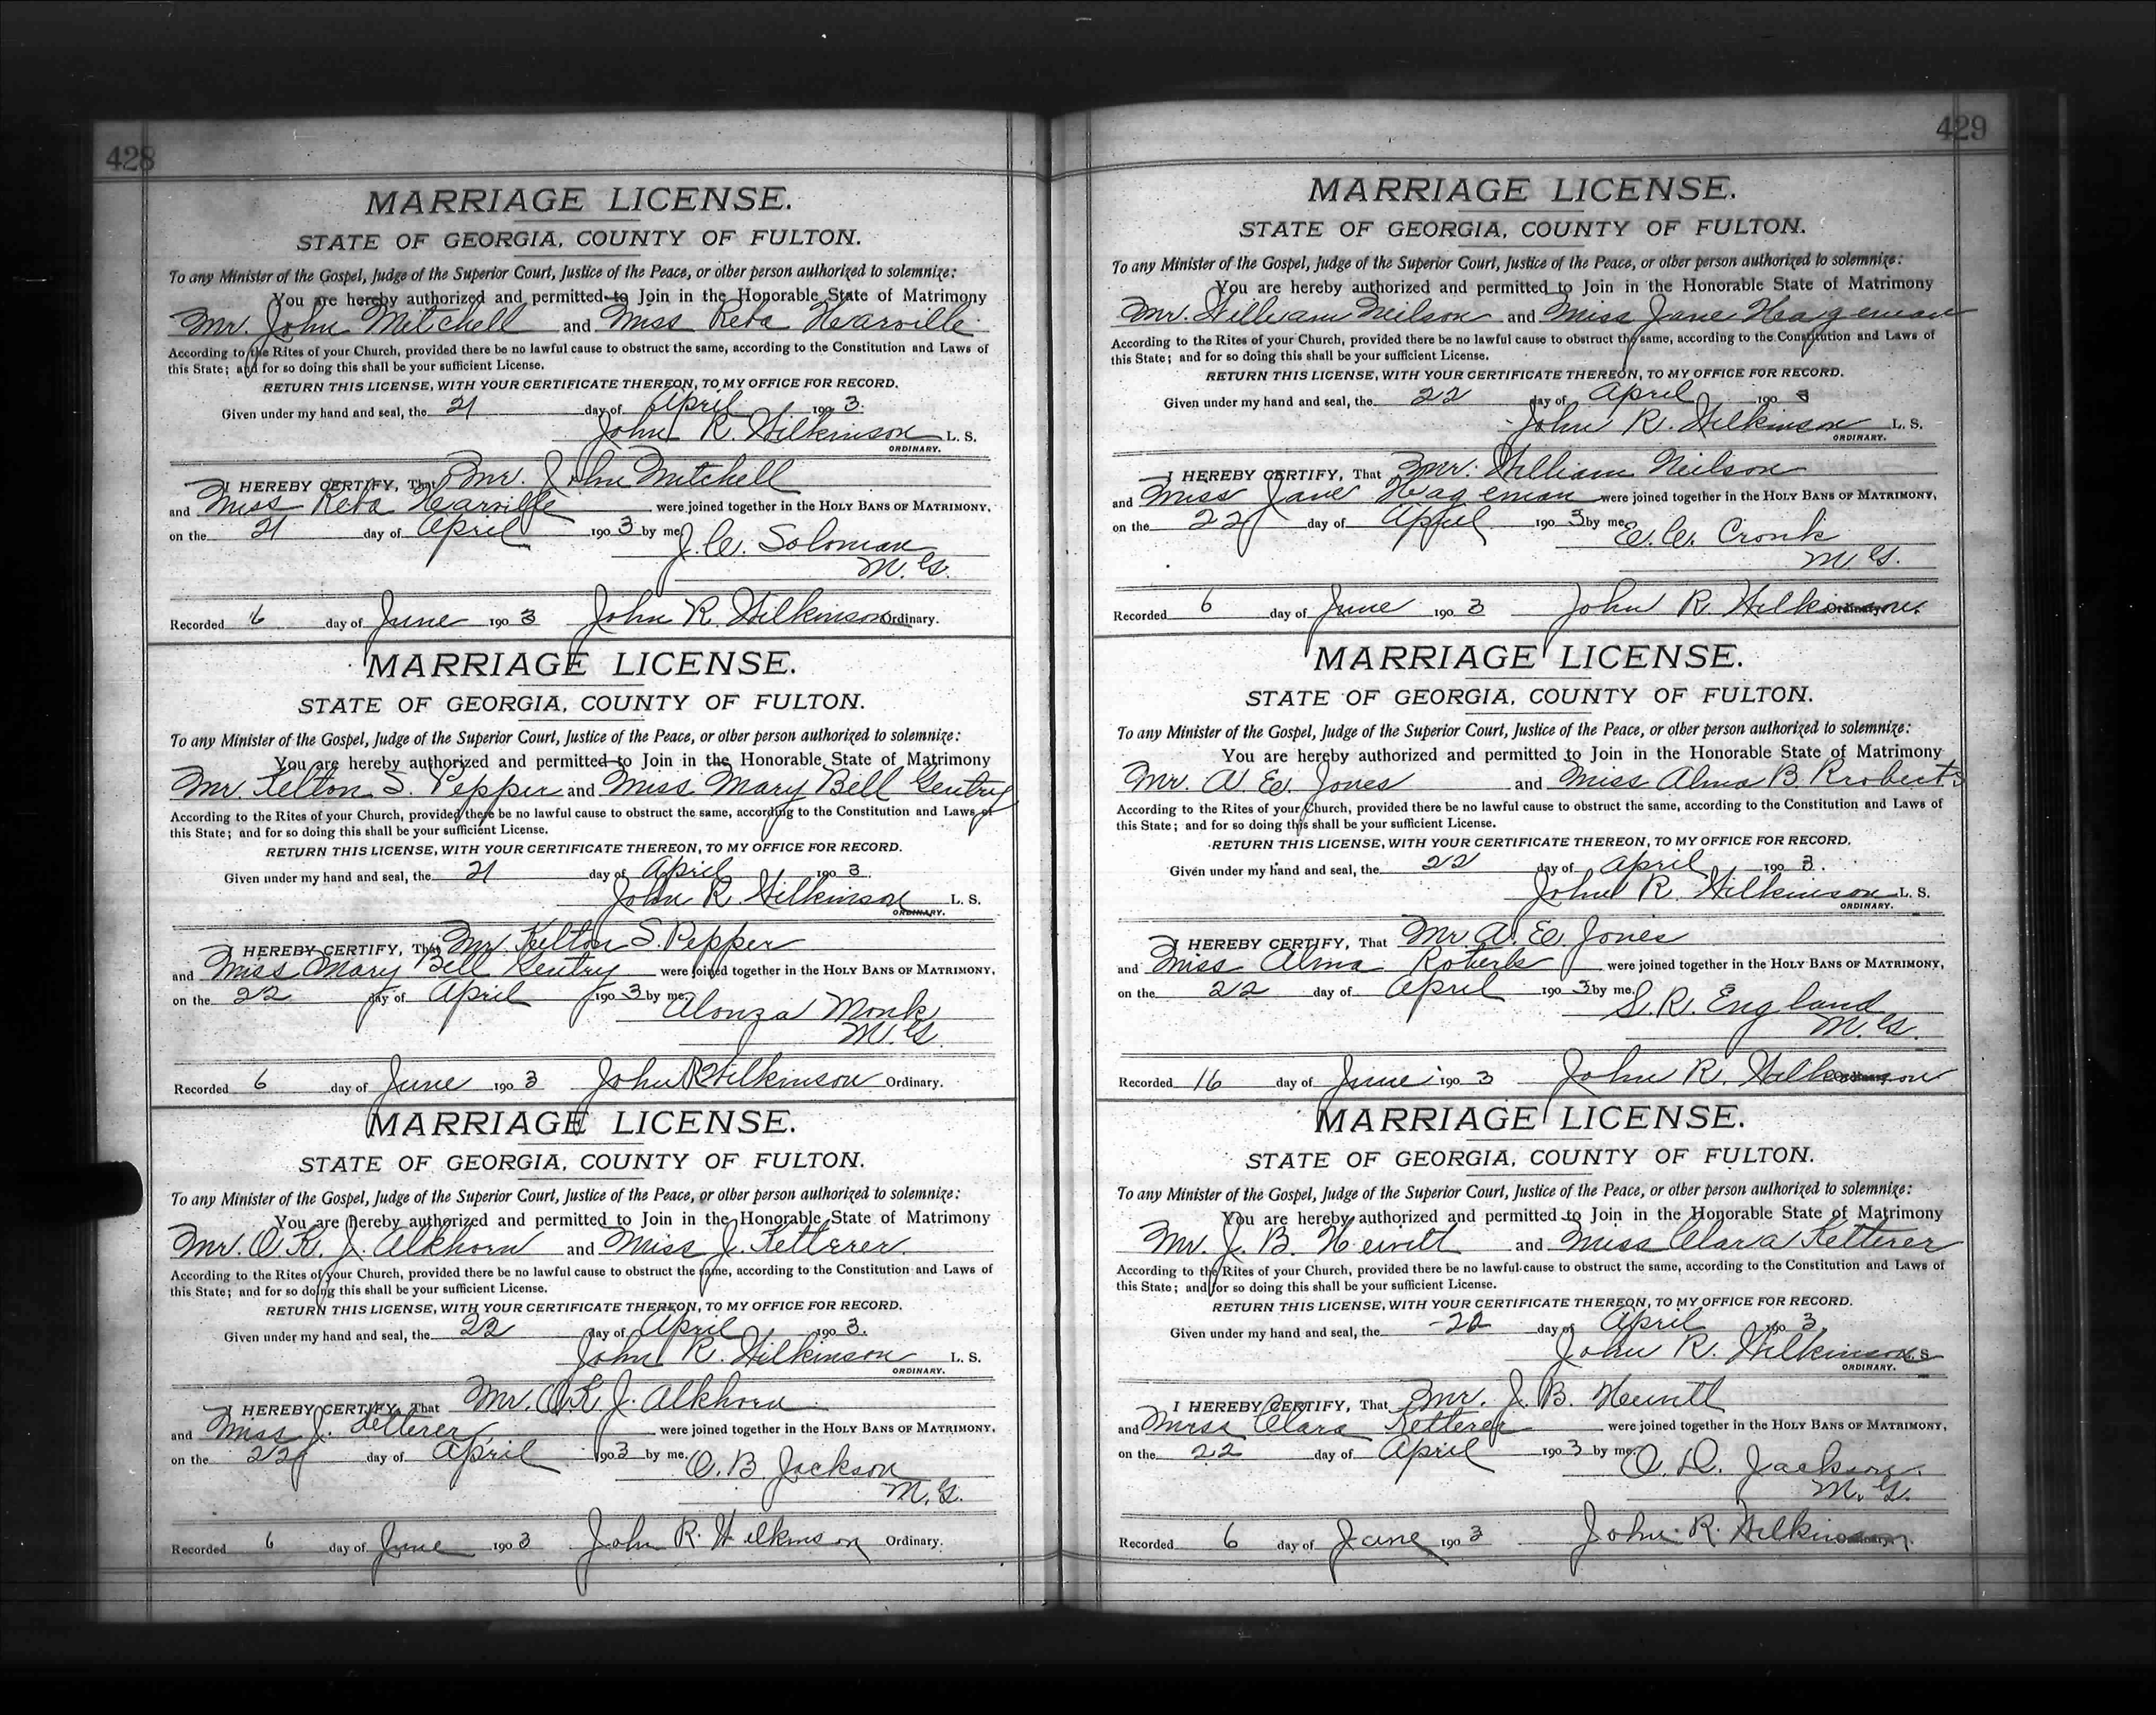 428
MARRIAGE LICENSE.
STATE OF GEORGIA, COUNTY OF FULTON.
To any Minister of the Gospel, Judge of the Superior Court, Justice of the Peace, or other person authorized to solemnize:
You are hereby authorized and permitted to Join in the Honorable State of Matrimony
Mr. John Mitchell and Miss Reba Hearville
According to the Rites of your Church, provided there be no lawful cause to obstruct the same, according to the Constitution and Laws of
this State; and for so doing this shall be your sufficient License.
RETURN THIS LICENSE, WITH YOUR CERTIFICATE THEREON, TO MY OFFICE FOR RECORD.
Given under my hand and seal, the 21 day of April 1903.
John R. Wilkinson L. S.
ORDINARY.
I HEREBY CERTIFY, That Mr. John Mitchell
and Miss Reba Hearville were joined together in the HOLY BANS OF MATRIMONY,
on the 21 day of April 1903 by me,
J. W. Soloman
M. G.
Recorded 6 day of June 1903 John R. Wilkinson Ordinary.
MARRIAGE LICENSE.
STATE OF GEORGIA, COUNTY OF FULTON.
To any Minister of the Gospel, Judge of the Superior Court, Justice of the Peace, or other person authorized to solemnize:
You are hereby authorized and permitted to Join in the Honorable State of Matrimony
Mr. Kelton S. Pepper and Miss Mary Bell Gentry
According to the Rites of your Church, provided there be no lawful cause to obstruct the same, according to the Constitution and Laws of
this State; and for so doing this shall be your sufficient License.
RETURN THIS LICENSE, WITH YOUR CERTIFICATE THEREON, TO MY OFFICE FOR RECORD.
Given under my hand and seal, the 21 day of April 1903.
John R. Wilkinson L. S.
ORDINARY.
I HEREBY CERTIFY, That Mr. Kelton S. Pepper
and Miss Mary Bell Gentry were joined together in the HOLY BANS OF MATRIMONY,
on the 22 day of April 1903 by me,
Alonza Monk
M. G.
Recorded 6 day of June 1903 John R Wilkinson Ordinary.
MARRIAGE LICENSE.
STATE OF GEORGIA, COUNTY OF FULTON.
To any Minister of the Gospel, Judge of the Superior Court, Justice of the Peace, or other person authorized to solemnize:
You are hereby authorized and permitted to Join in the Honorable State of Matrimony
Mr. O. K. J. Alkhorn and Miss J. Ketterer.
According to the Rites of your Church, provided there be no lawful cause to obstruct the same, according to the Constitution and Laws of
this State; and for so doing this shall be your sufficient License.
RETURN THIS LICENSE, WITH YOUR CERTIFICATE THEREON, TO MY OFFICE FOR RECORD.
Given under my hand and seal, the 22 day of April 1903.
John R. Wilkinson L. S.
ORDINARY.
I HEREBY CERTIFY, That Mr. O. K. J. Alkhorn
and Miss J. Ketterer were joined together in the HOLY BANS OF MATRIMONY,
on the 22 day of April 1903 by me,
O. B. Jackson
M. G.
Recorded 6 day of June 1903 John R. Wilkinson Ordinary.
429
MARRIAGE LICENSE.
STATE OF GEORGIA, COUNTY OF FULTON.
To any Minister of the Gospel, Judge of the Superior Court, Justice of the Peace, or other person authorized to solemnize:
You are hereby authorized and permitted to Join in the Honorable State of Matrimony
Mr. William Neilson and Miss Jane Hageman
According to the Rites of your Church, provided there be no lawful cause to obstruct the same, according to the Constitution and Laws of
this State; and for so doing this shall be your sufficient License.
RETURN THIS LICENSE, WITH YOUR CERTIFICATE THEREON, TO MY OFFICE FOR RECORD.
Given under my hand and seal, the 22 day of April 1903
John R. Wilkinson L. S.
ORDINARY.
I HEREBY CERTIFY, That Mr. William Neilson
and Miss Jane Hageman were joined together in the HOLY BANS OF MATRIMONY,
on the 22 day of April 1903 by me,
E. C. Cronk
M G.
Recorded 6 day of June 1903 John R. Wilkinson. Ordinary.
MARRIAGE LICENSE.
STATE OF GEORGIA, COUNTY OF FULTON.
To any Minister of the Gospel, Judge of the Superior Court, Justice of the Peace, or other person authorized to solemnize:
You are hereby authorized and permitted to Join in the Honorable State of Matrimony
Mr. A. E. Jones and Miss Alma B. Rroberts
According to the Rites of your Church, provided there be no lawful cause to obstruct the same, according to the Constitution and Laws of
this State; and for so doing this shall be your sufficient License.
RETURN THIS LICENSE, WITH YOUR CERTIFICATE THEREON, TO MY OFFICE FOR RECORD.
Given under my hand and seal, the 22 day of April 1903.
John R. Wilkinson L. S.
ORDINARY.
I HEREBY CERTIFY, That Mr. A. E. Jones
and Miss Alma Roberts were joined together in the HOLY BANS OF MATRIMONY,
on the 22 day of April 1903 by me,
S. R. England
M. G.
Recorded 16 day of June 1903 John R. Wilkinson Ordinary.
MARRIAGE LICENSE.
STATE OF GEORGIA, COUNTY OF FULTON.
To any Minister of the Gospel, Judge of the Superior Court, Justice of the Peace, or other person authorized to solemnize:
You are hereby authorized and permitted to Join in the Honorable State of Matrimony
Mr. J. B. Hewitt and Miss Clara Ketterer
According to the Rites of your Church, provided there be no lawful cause to obstruct the same, according to the Constitution and Laws of
this State; and for so doing this shall be your sufficient License.
RETURN THIS LICENSE, WITH YOUR CERTIFICATE THEREON, TO MY OFFICE FOR RECORD.
Given under my hand and seal, the 22 day of April 1903.
John R. Wilkinson L. S.
ORDINARY.
I HEREBY CERTIFY, That Mr. J. B. Hewitt
and Miss Clara Ketterer were joined together in the HOLY BANS OF MATRIMONY,
on the 22 day of April 1903 by me,
O. D. Jackson.
M. G.
Recorded 6 day of June 1903 John R. Wilkinson Ordinary.